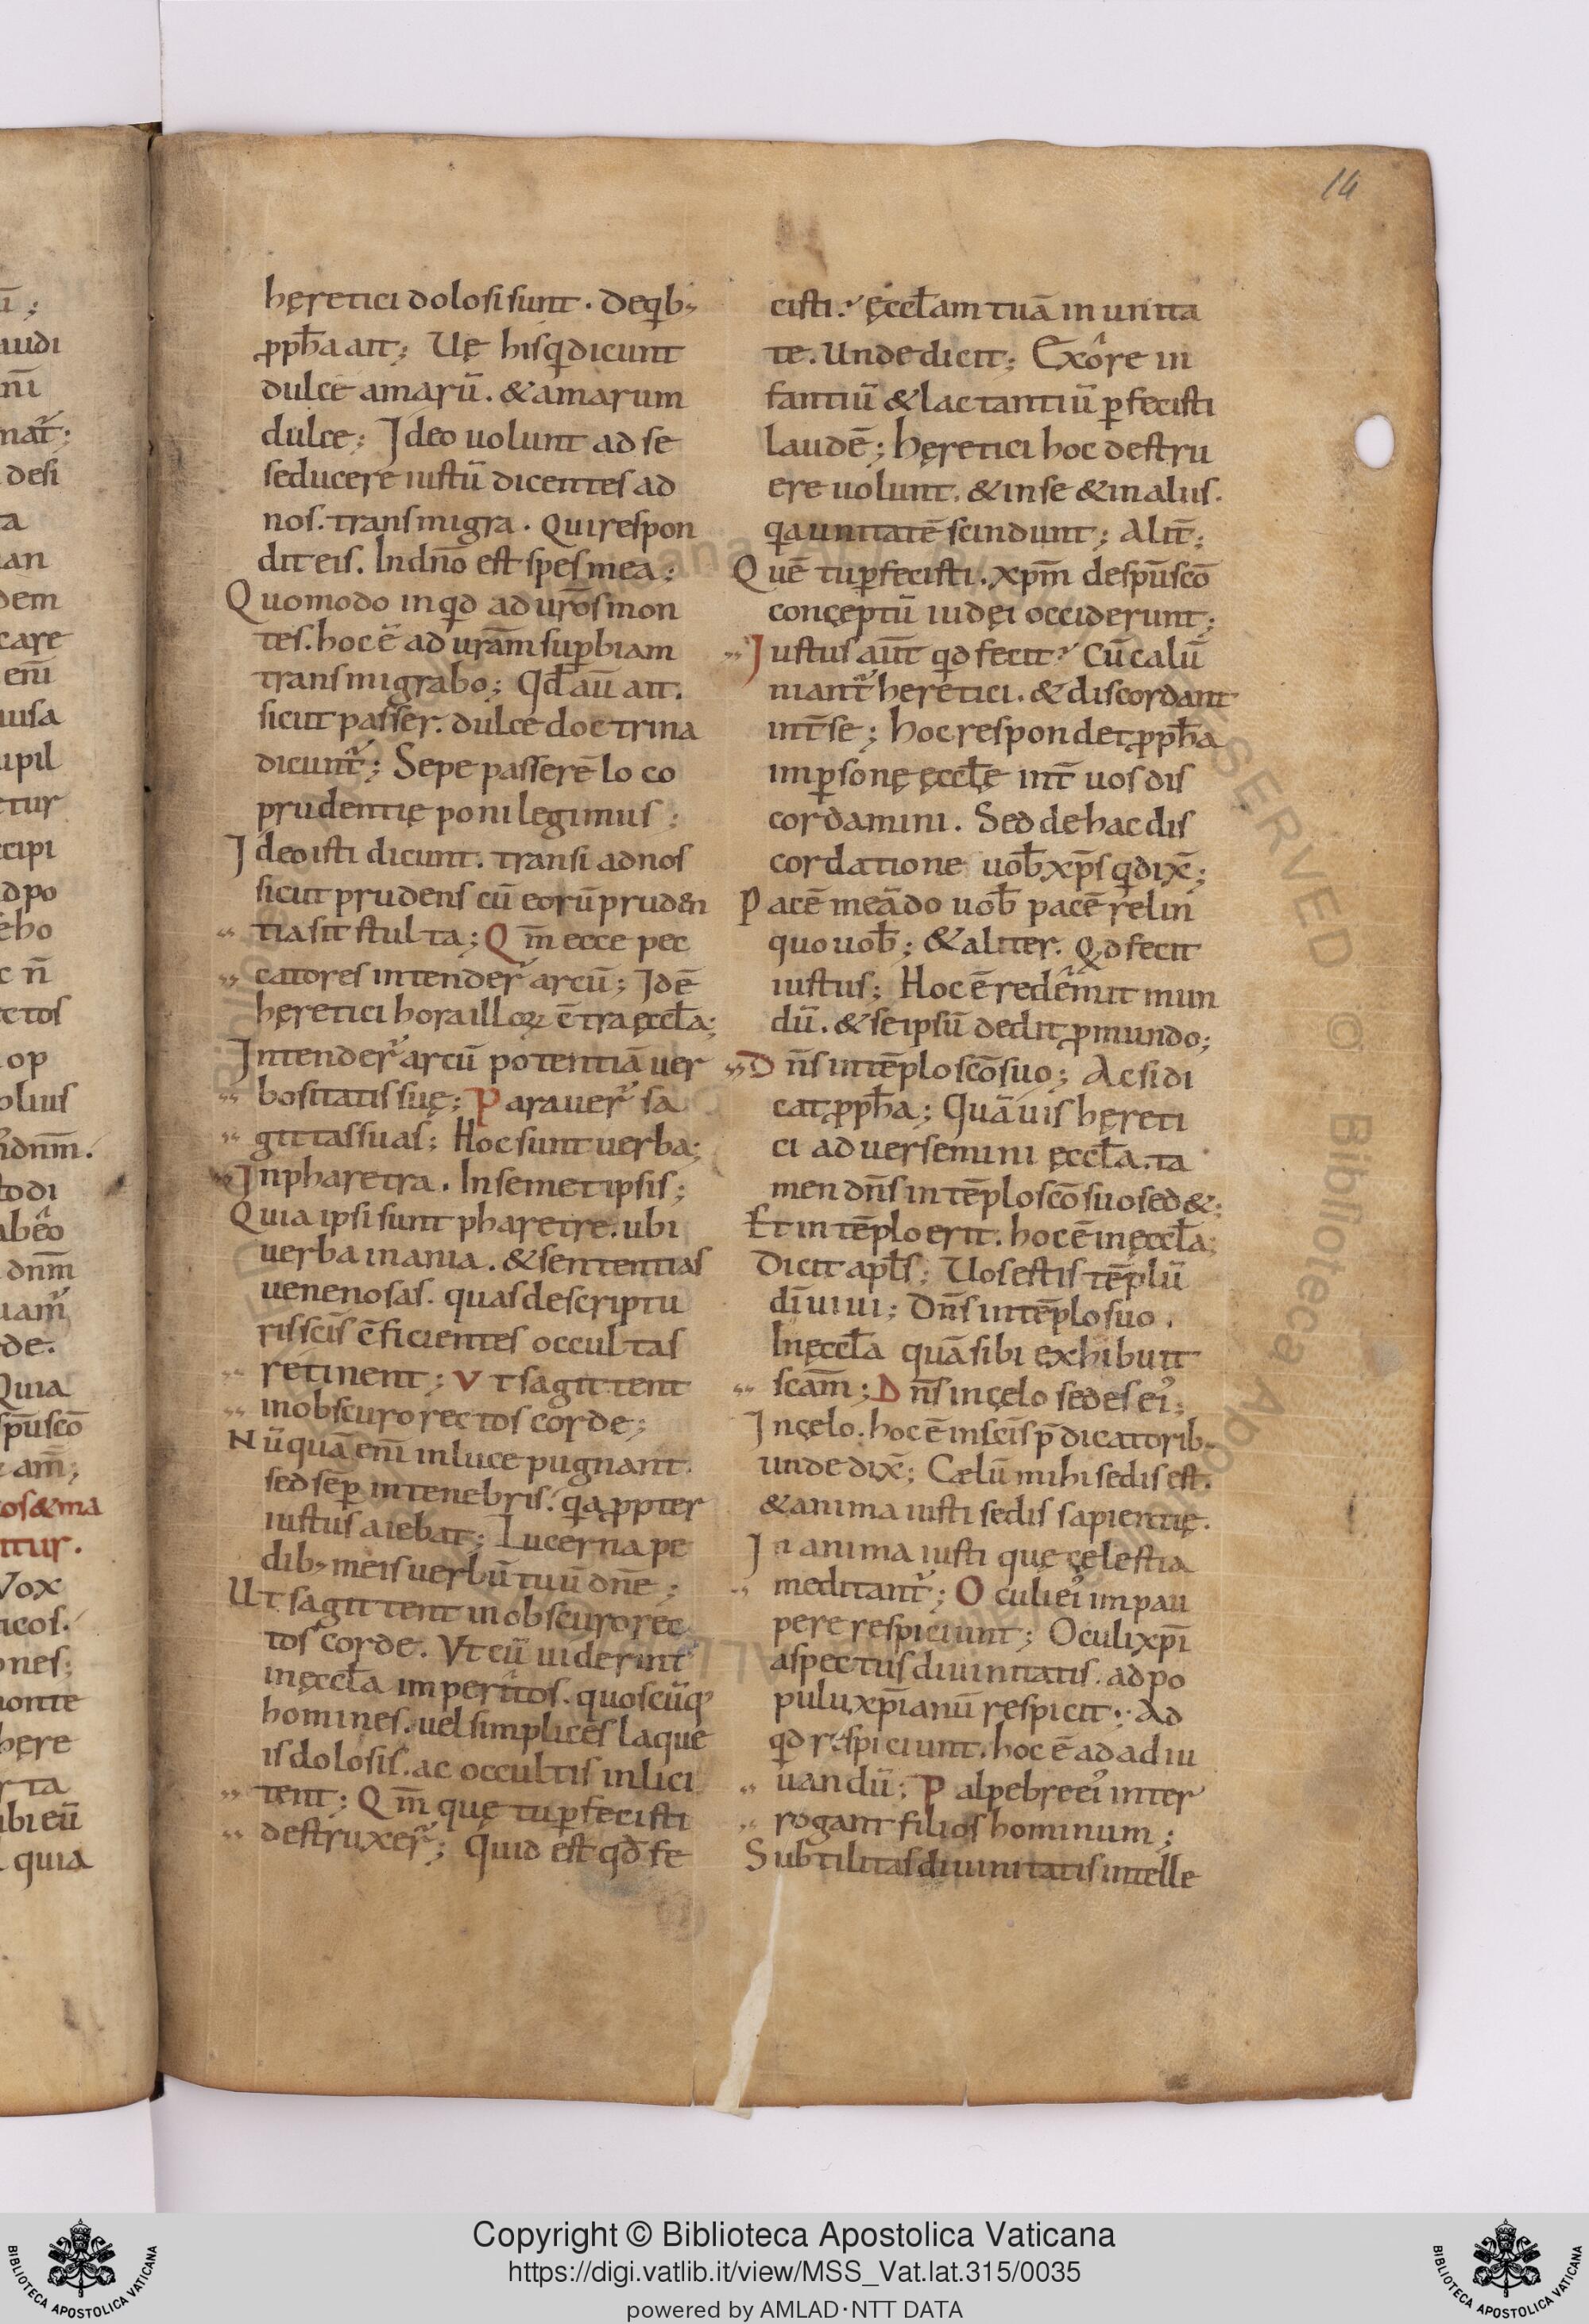 14
hęretici dolosi sunt. De qib;
ꝓph̄a ait; Uę his qi dicunt
dulce amarū. & amarum
dulce; Ideo uolunt ad se
seducere iustū dicentes ad
nos. transmigra. Qui respon
dit eis. In dn̄o est spes mea;
Quomodo inqid ad ur̄os mon
tes. hoc ē ad ur̄am suꝑbiam
transmigrabo; Qd̄ aū ait.
sicut passer. dulce doctrina
dicunt᷑; Sepe passerē loco
prudentię poni legimus;
Ideo isti dicunt. transi ad nos
sicut prudens cū eorū prud&n
tia sit stulta; Qm̄ ecce pec
catores intender᷑ arcū; Idē
hęretici hora illoꝝ c̄tra ęccl̄a;
Intender᷑ arcū potentiā uer
bositatis suę; Parauer᷑ sa
gittas suas; Hoc sunt uerba;
In pharetra. In semetipsis;
Quia ipsi sunt pharetre. ubi
uerba inania. & sententias
uenenosas. quas descriptu
ris sc̄is c̄ficientes occultas
retinent; Vt sagittent
in obscuro rectos corde;
Nūquā eni᷑ in luce pugnant.
sed sēꝑ in tenebris. qia ꝓpter
iustus aiebat; Lucerna pe
dib; meis uerbū tuū dn̄e;
Ut sagittent in obscuro rec
tos corde. Vt cū uiderint
in ęccl̄a imperitos. quoscūq;
homines. uel simplices laque
is dolosis. ac occultis inlici
tent; Qm̄ quę tu ꝑfecisti
destruxer᷑; Quid est qd̄ fe
cisti? ęccl̄am tuā in unita
te. Unde dicit; Ex ore in
fantiū & lactantiū ꝑfecisti
laudē; hęretici hoc destru
ere uolunt. & in se & in aliis.
qia unitatē scindunt; Alit̄;
Quē tu ꝑfecisti. xpm̄ de sp̄u sc̄o
conceptū iudęi occiderunt;
Iustus aūt qid fecit? Cū calū
niant᷑ heretici. & discordant
int̄ se; hoc respondet ꝓph̄a
in ꝑsonę ęccl̄ę int̄ uos dis
cordamini. Sed de hac dis
cordatione uob̄ xp̄s qid dix̄;
Pacē meā do uob̄ pacē relin
quo uob̄; & aliter. Qid fecit
iustus; Hoc ē redēmit mun
dū. & se ipsū dedit ꝓ mundo;
Dn̄s in tēplo sc̄o suo; Ac si di
cat ꝓph̄a; Quāuis hęreti
ci aduersemini ęccl̄a. ta
men dn̄s in tēplo sc̄o suo sed&;
Et in tēplo erit. hoc ē in ęccl̄a;
Dicit apl̄s; Uos estis tēplū
dī uiui; Dn̄s in tēplo suo.
In ęccl̄a quā sibi exhibuit
sc̄am; Dn̄s in cęlo sedes ei᷒;
In cęlo. hoc ē in sc̄is p̄dicatorib;
unde dix̄; Cælū mihi sedis est.
& anima iusti sedis sapientię.
In anima iusti quę cęlestia
meditant᷑; Oculi ei᷒ in pau
pere respiciunt; Oculi xp̄i
aspectus diuinitatis. ad po
pulū xp̄ianū respicit; Ad
qd respiciunt. hoc ē ad adiu
uandū; Palpebre ei᷒ inter
rogant filios hominum;
Subtilitas diuinitatis intelle
Copyright © Biblioteca Apostolica Vaticana
https://digi.vatlib.it/view/MSS_Vat.lat.315/0035
powered by AMLAD·NTT DATA